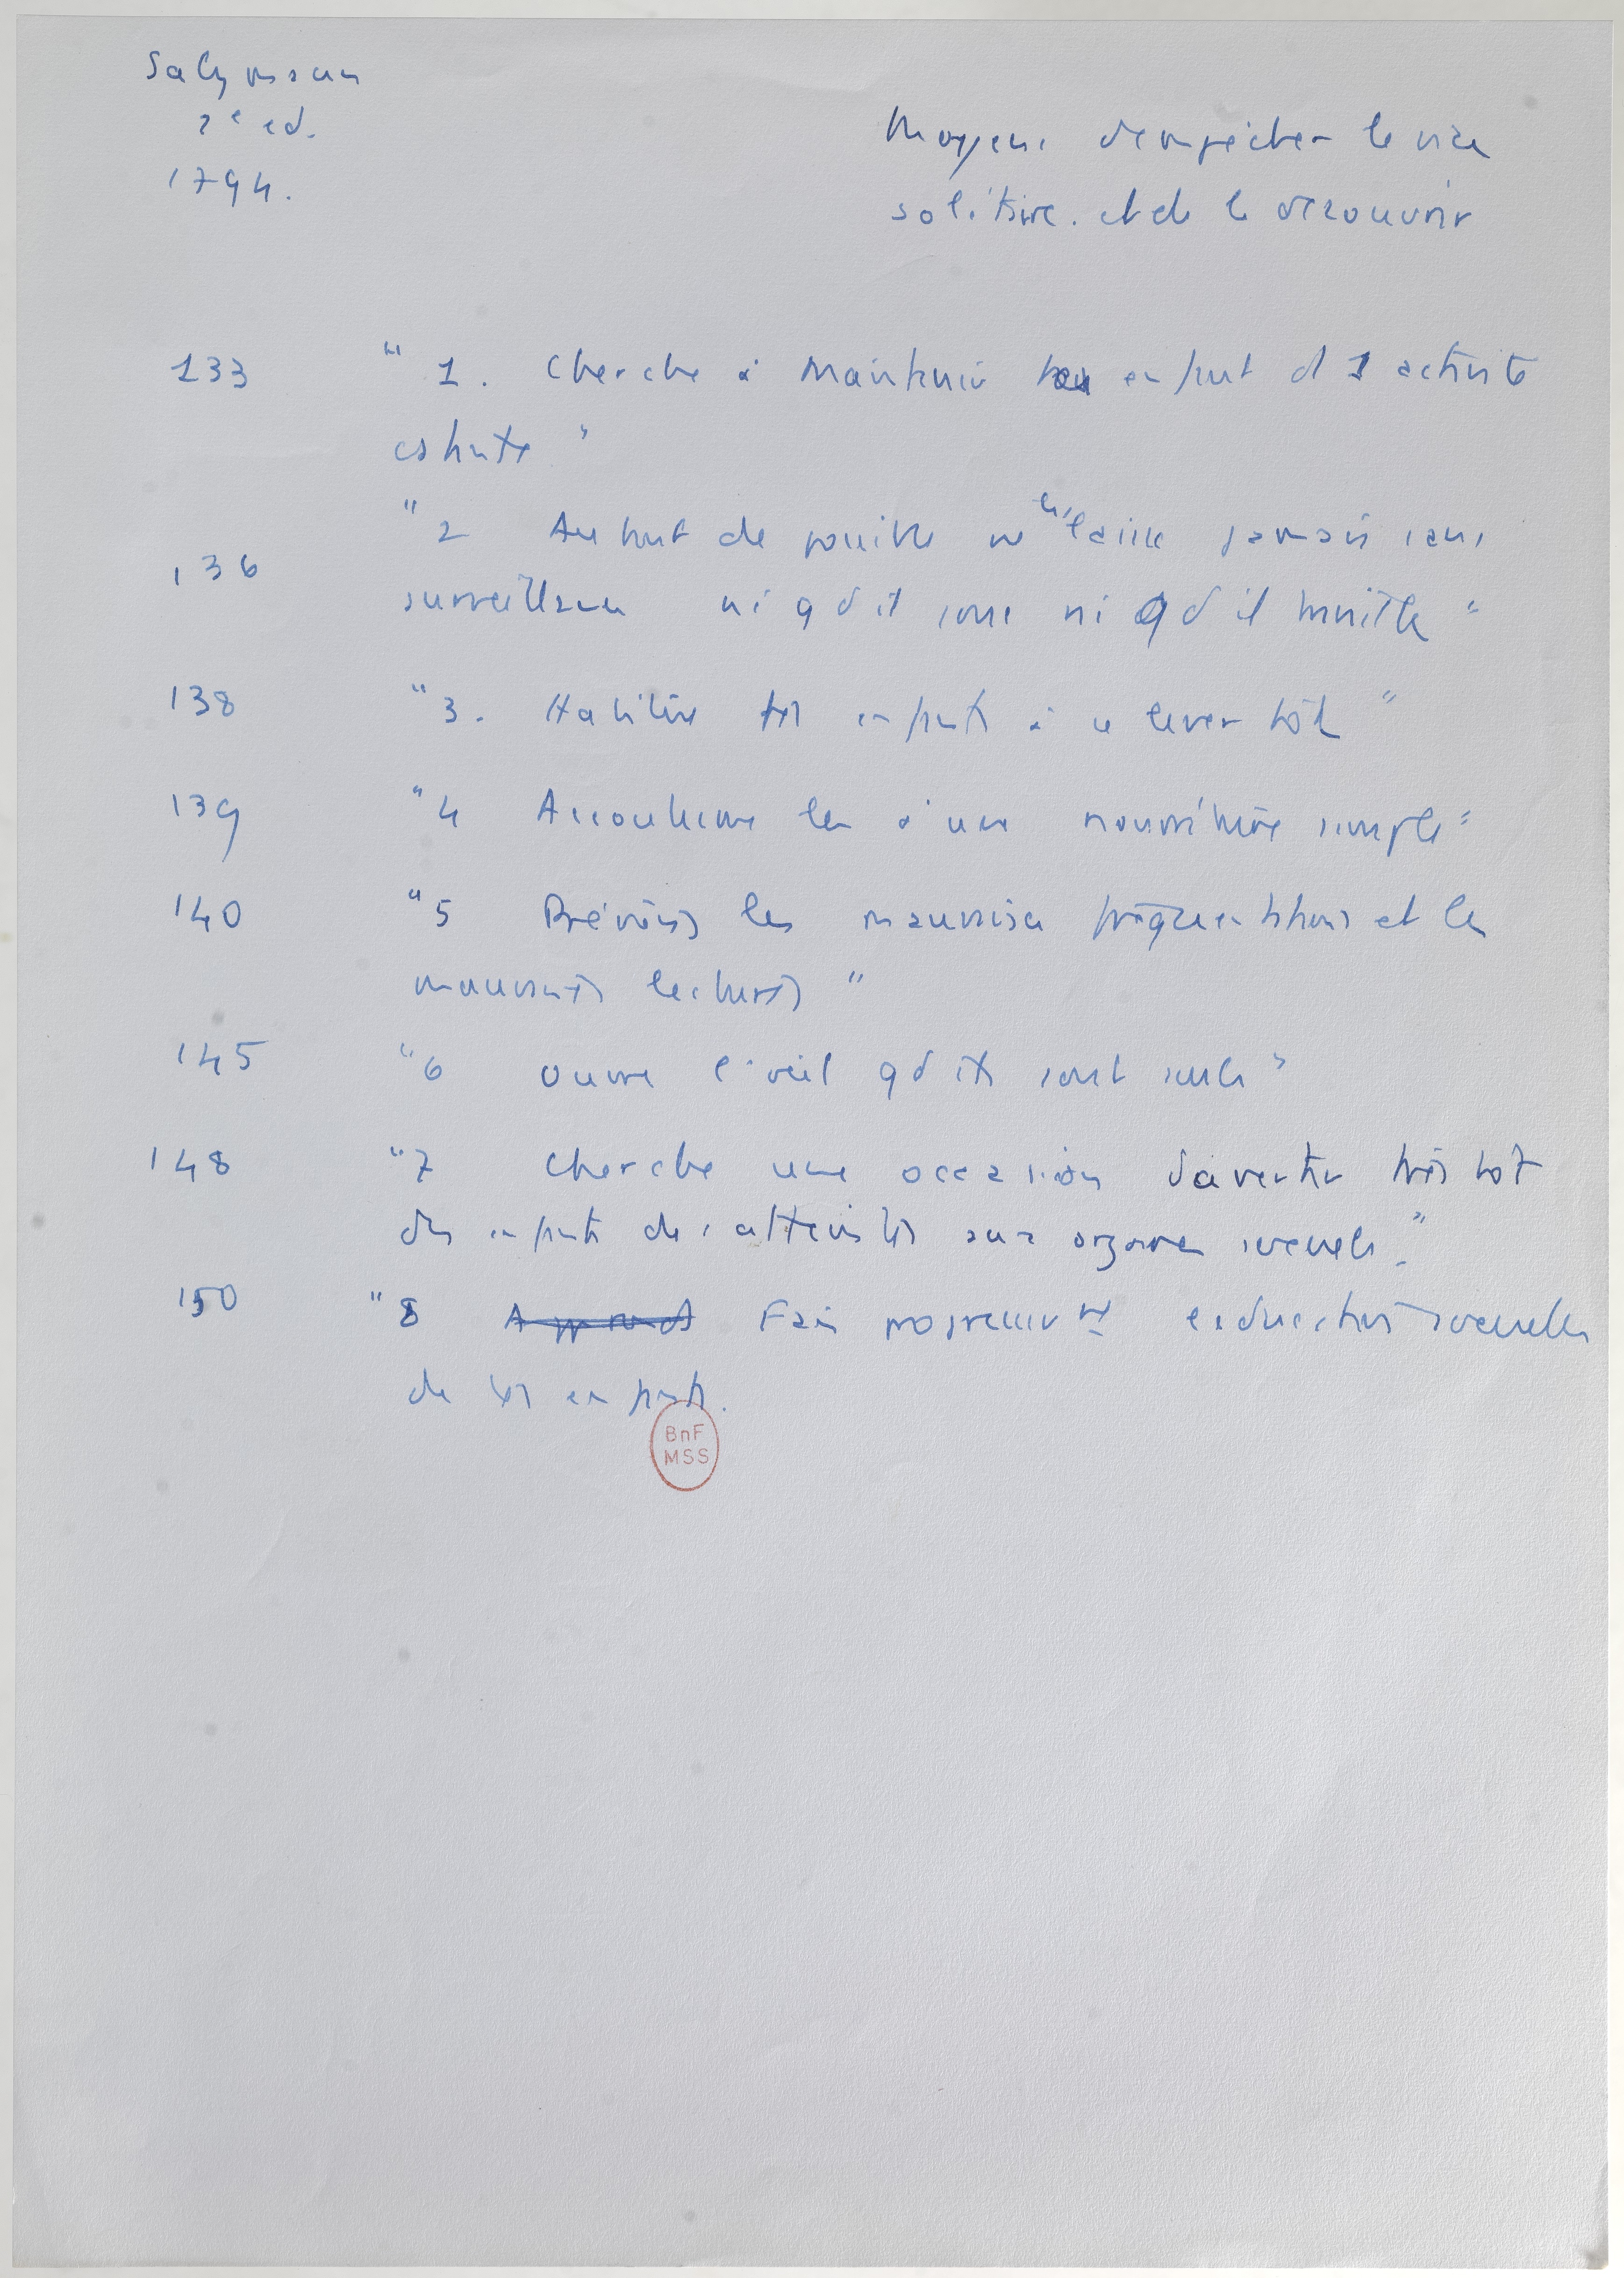 Salzmann
2e ed.
1794.
Moyens d'empêcher le vice
solitaire. et de le découvrir
133 " 1. Cherche à maintenir ton enfant ds 1 activité
cstante "
136 " 2 Autant que possible ne les laisse jamais sans
surveillance ni qd il joue ni qd il travaille "
138 " 3. Habitue tes enfants à se lever tôt "
139 " 4 Accoutume les à une nourriture simple "
140 " 5 Préviens les mauvaises fréquentations et les
mauvaises lectures "
145 " 6 Ouvre l'oeil qd ils sont seuls "
148 " 7 Cherche une occasion d'avertir très tôt
des enfants des atteintes aux organes sexuels. "
150 " 8 Fais progressivt l'éducation sexuelle
de tes enfants.
BnF
MSS